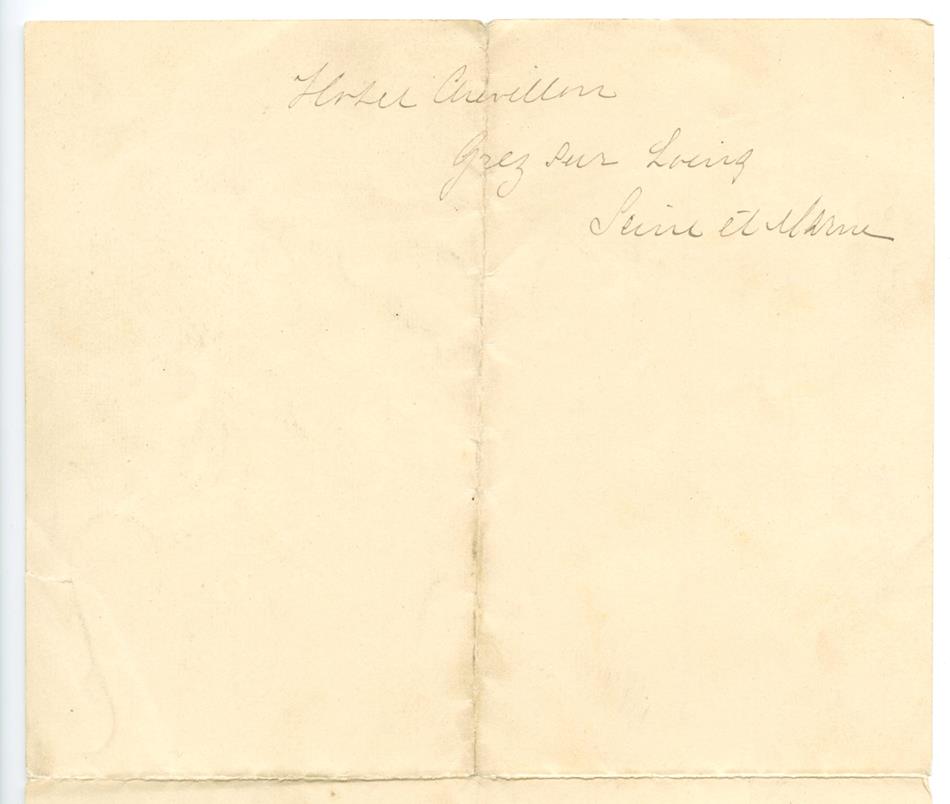 Hotel Chevillon
Grez sur Loing
Seine et Marne